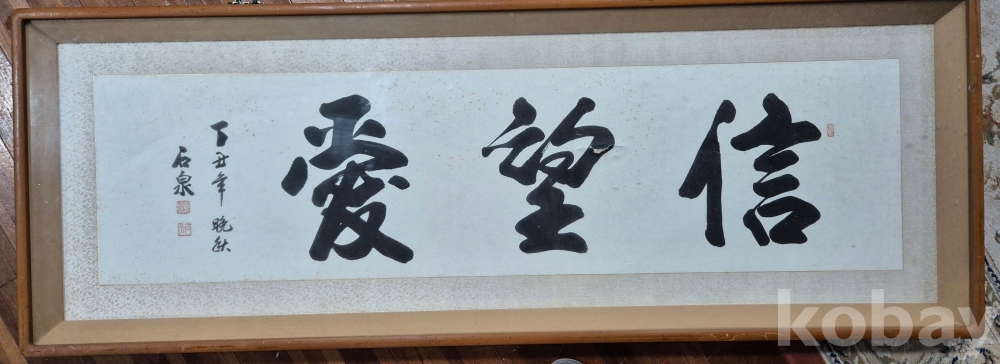 信望愛
丁丑年 晚秋
石泉
kobay